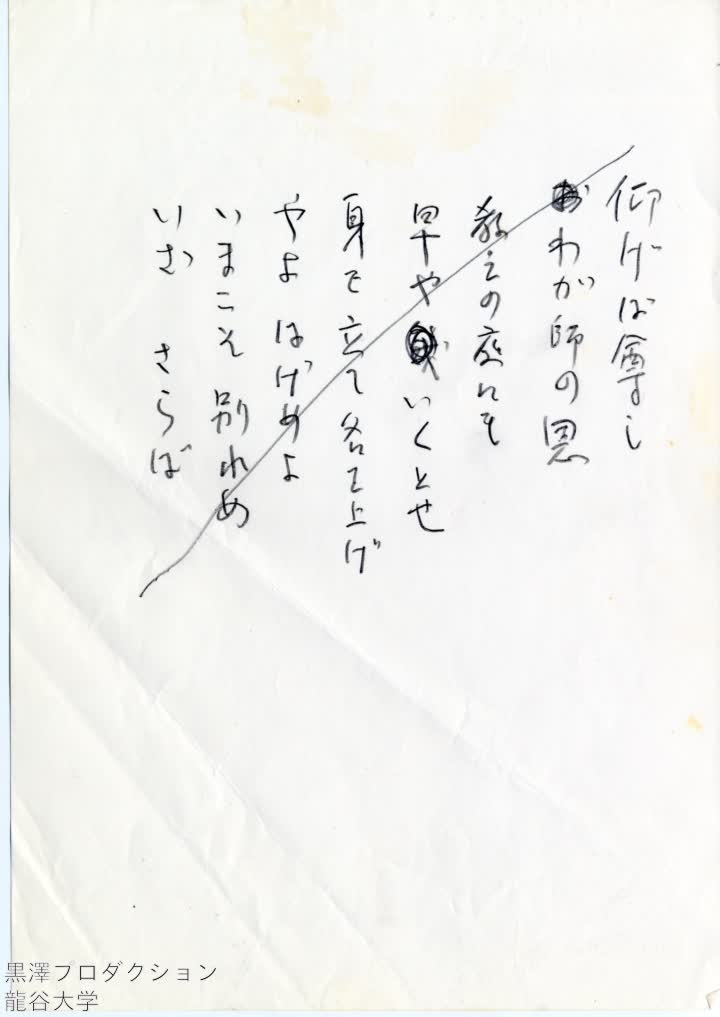 仰げば尊し
わが師の恩
教えの庭にも
早や いくとせ
身を立て名を上げ
やよ はげめよ
いまこそ別れめ
いざ さらば
黒澤プロダクション
龍谷大学